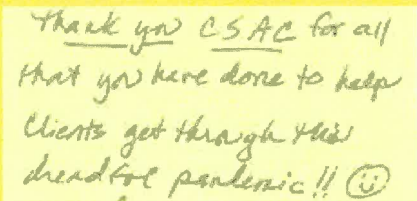 Thank you CSAC for all
that you have done to help
Clients get through this
dreadful pandemic!! ☺